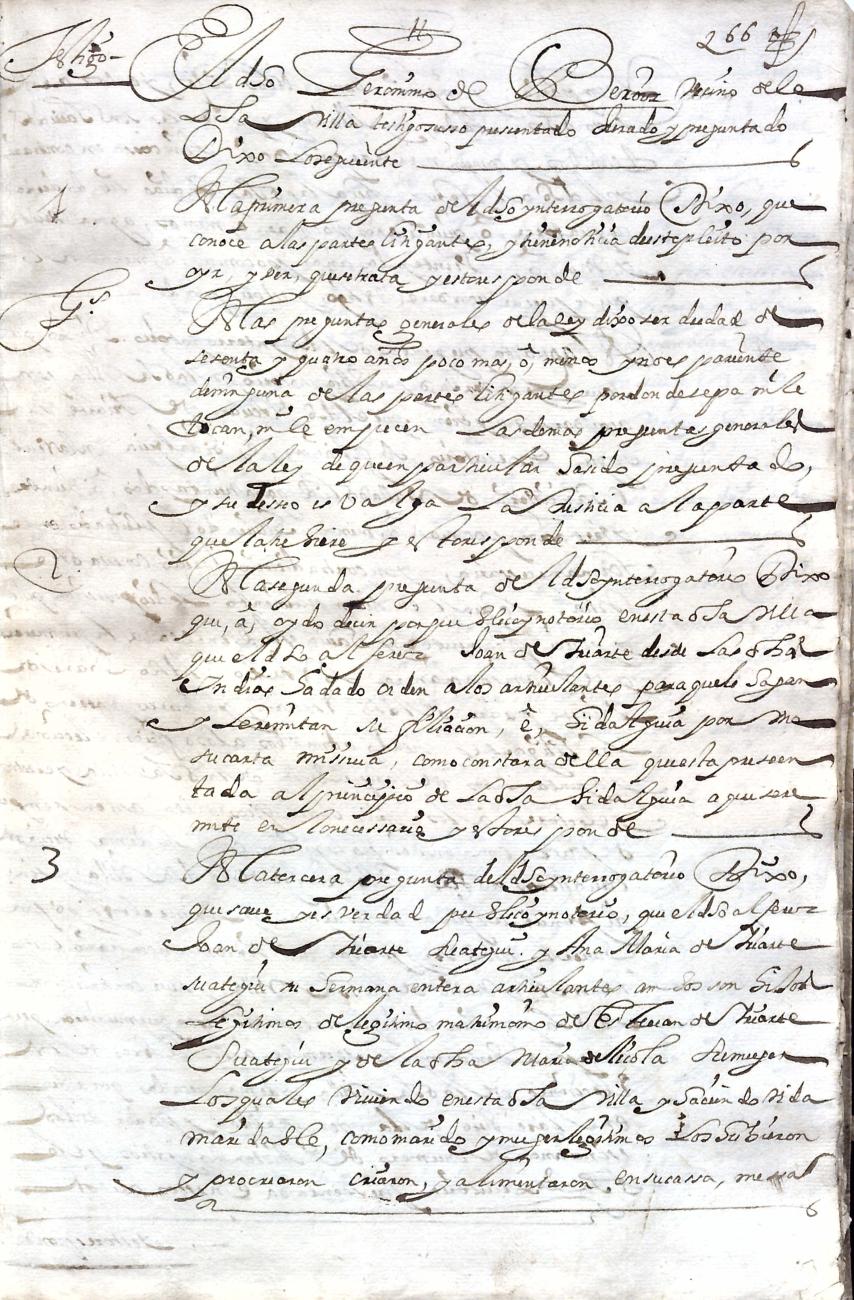 266
Testigo
El dho Geronimo de Veroiz vezino de la
dha Villa testigo susso pressentado Jurado y preguntado
Dixo Losiguiente
1 A la primera pregunta del dho ynterrogatorio Dixo, que
conoce a las partes litigantes, y tiene noticia deste pleito por
oyr, y ver, quesetrata y esto responde
Gs. A las preguntas generales de la ley dixo ser de edad de
sesenta y quatro años poco mas, o, menos y no es pariente
de ninguna de las partes litigantes por donde sepa nile
tocan, ni le empecen Las demas preguntas generales
de la ley de que en particular a sido preguntado,
y su desseo es Valga La Justicia a la parte
que la tubiere y esto responde
2 A la segunda pregunta del dho ynterrogatorio Dixo
que, a, oydo decir por publico y notorio en esta dha Villa
que el dho alferez Joan de Yriarte desde Las dhas
Indias a dado orden a los articulantes para que le hagan
y Le remitan su filiacion, e, hidalguia por
su carta missiva, como constara della que esta presen
tada al principio de La dha hidalguia a que se re
mite en lo necessario y esto responde
3 A la tercera pregunta del dho ynterrogatorio Dixo,
que save y es verdad publico y notorio, que el dho alferez
Joan de Yriarte y Ana Maria de Yriarte
su hermana entera articulantes ambos son hijos
Legitimos de legitimo matrimonio de Estevan de Yriarte
y de la dha Maria de su muger
Los quales Viviendo en esta dha Villa y haciendo vida
maridable, como marido y muger legitimos Los hubieron
y procrearon criaron, y alimentaron en su cassa, messa